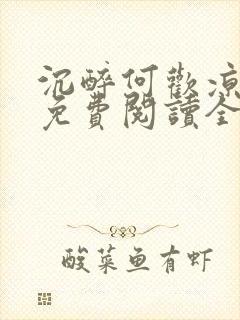 沉醉何歡涼
免費閱讀全
酸菜鱼有虾